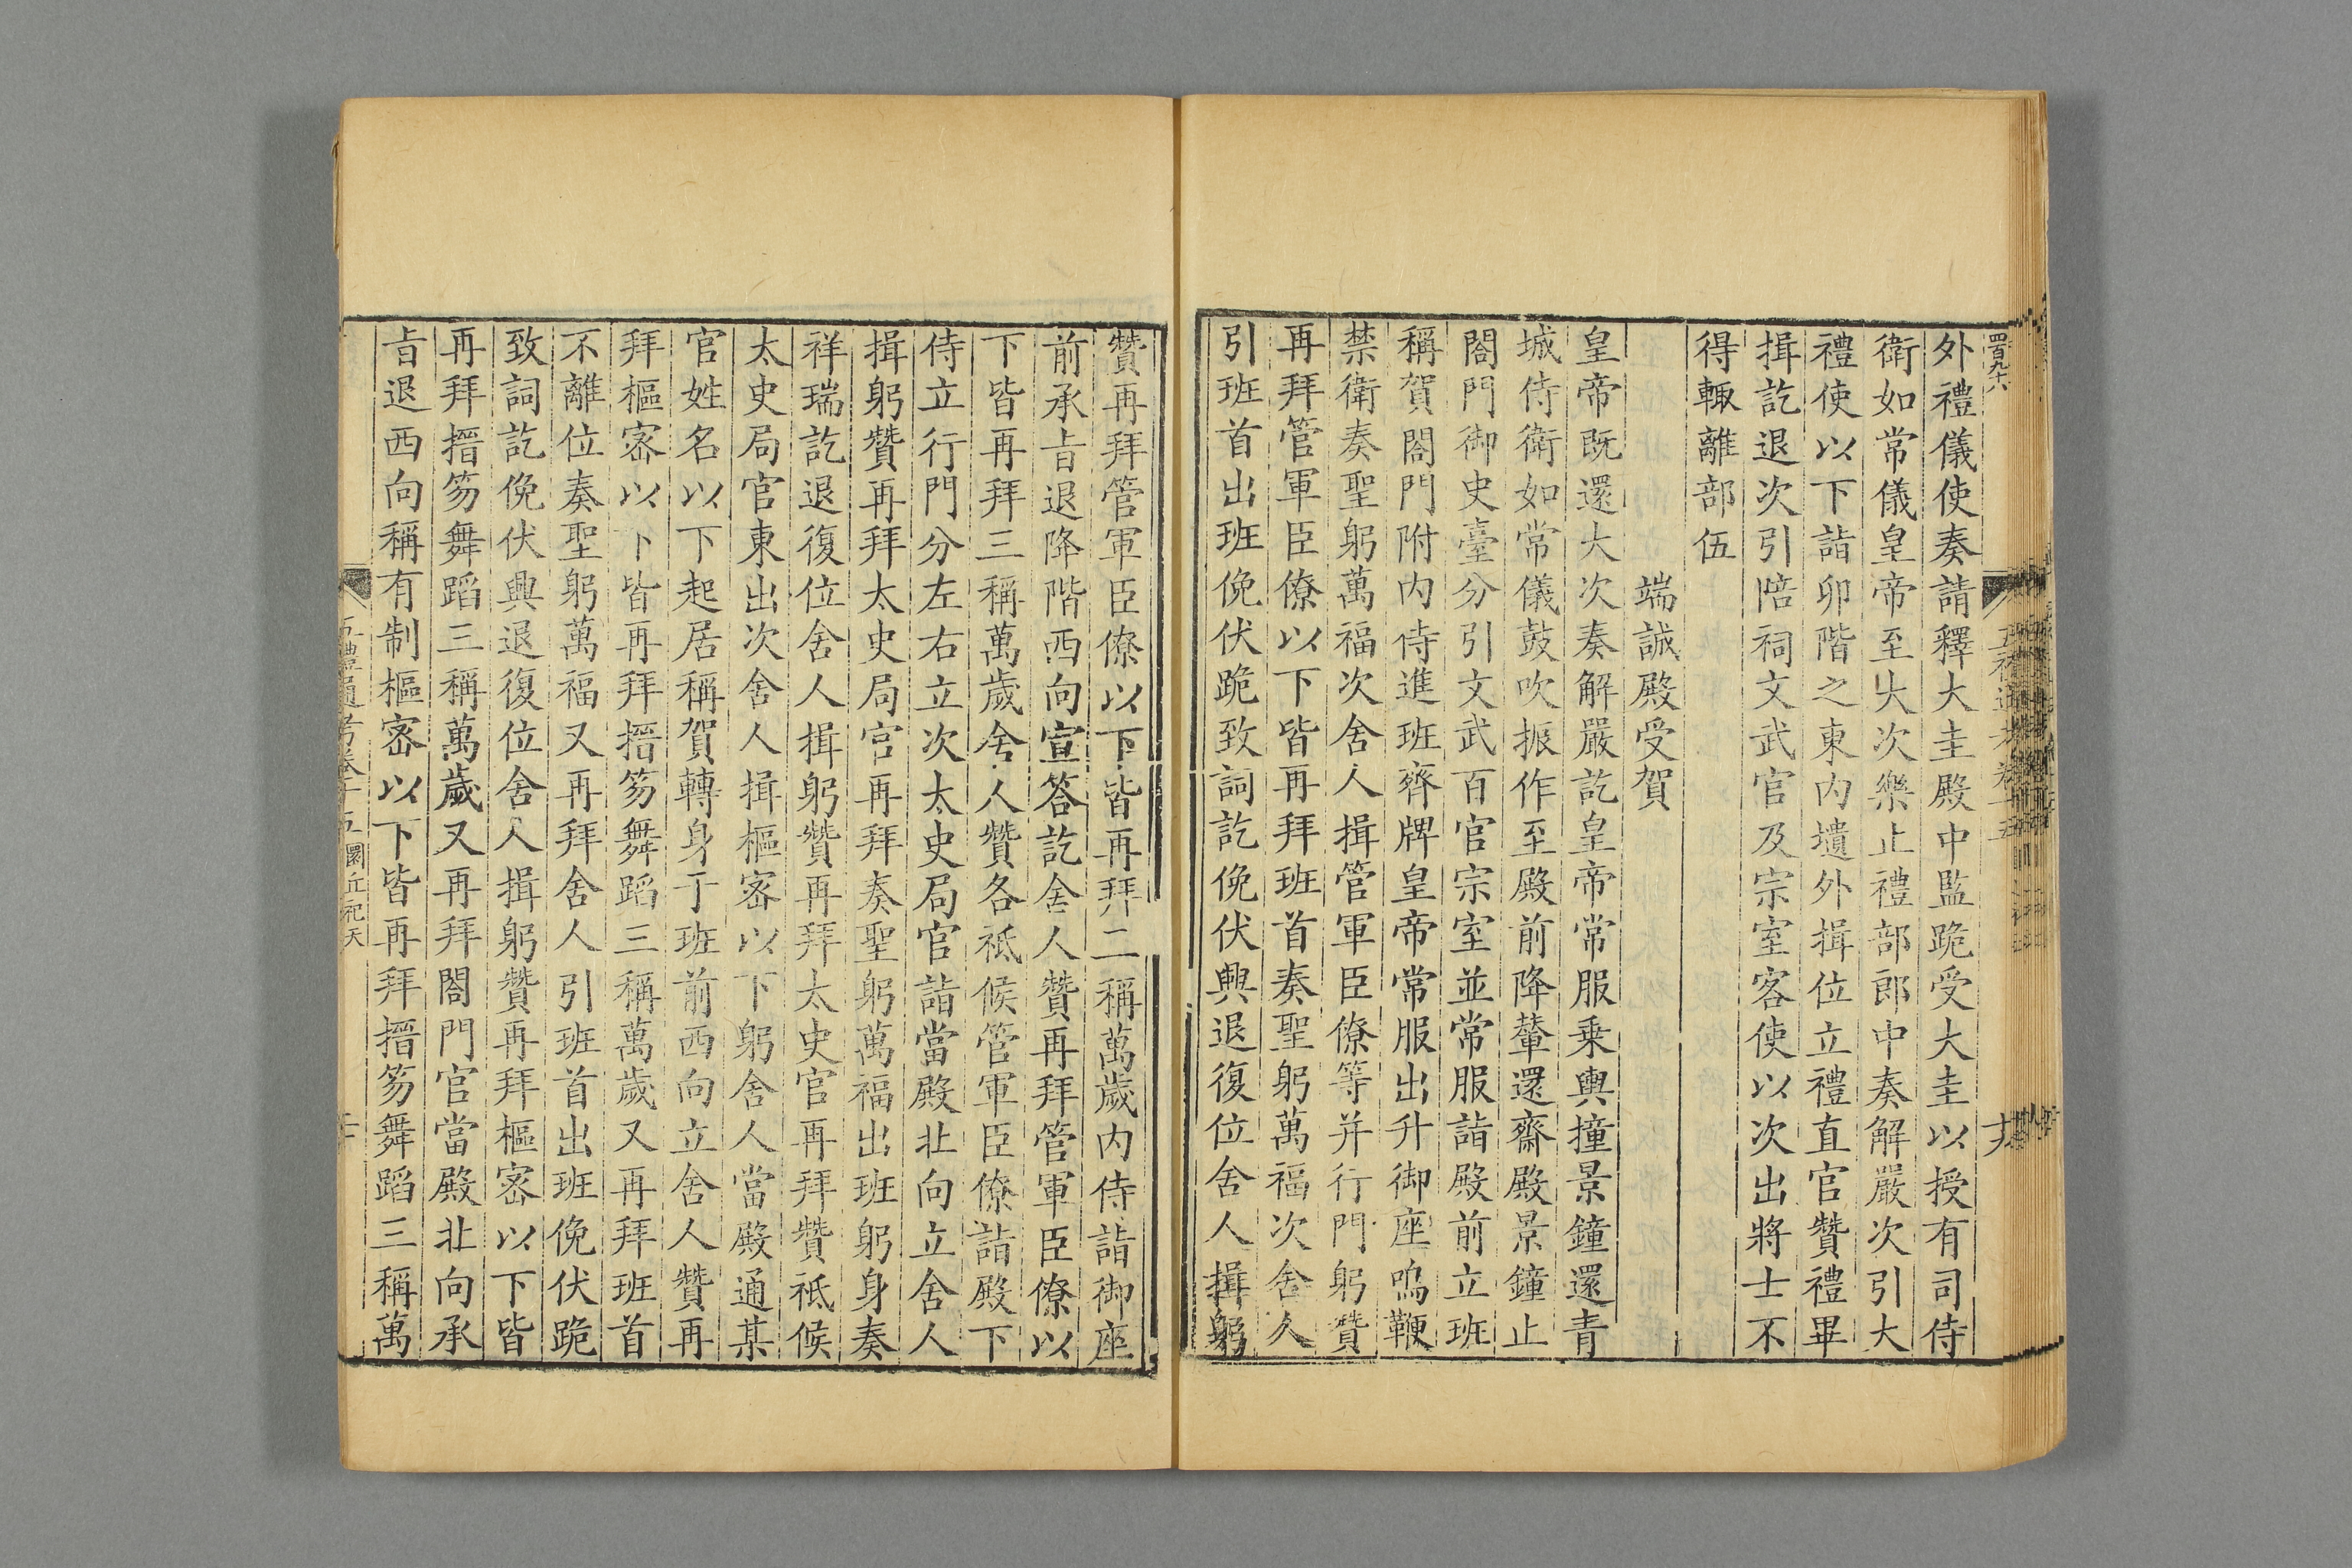 四百九十八
五禮通考卷十五
外禮儀使奏請釋大圭殿中監跪受大圭以授有司侍
衛如常儀皇帝至大次樂止禮部郎中奏解嚴次引大
禮使以下詣卯階之東內壝外揖位立禮直官贊禮畢
揖訖退次引陪祠文武官及宗室客使以次出將士不
得輙離部伍
端誠殿受賀
皇帝既還大次奏解嚴訖皇帝常服乗輿撞景鐘還青
城侍衛如常儀鼓吹振作至殿前降輦還齋殿景鐘止
閤門御史臺分引文武百官宗室並常服詣殿前立班
稱賀閤門附內侍進班齊牌皇帝常服出升御座鳴鞭
禁衛奏聖躬萬福次舍人揖管軍臣僚等并行門躬贊
再拜管軍臣僚以下皆再拜班首奏聖躬萬福次舍人
引班首出班俛伏跪致詞訖俛伏興退復位舍人揖躬
贊再拜管軍臣僚以下皆再拜三稱萬歲內侍詣御座
前承㫖退降階西向宣答訖舍人贊再拜管軍臣僚以
下皆再拜三稱萬歲舍人贊各祗候管軍臣僚詣殿下
侍立行門分左右立次太史局官詣當殿北向立舍人
揖躬贊再拜太史局官再拜奏聖躬萬福出班躬身奏
祥瑞訖退復位舍人揖躬贊再拜太史官再拜贊祗候
太史局官東出次舍人揖樞宻以下躬舍人當殿通某
官姓名以下起居稱賀轉身于班前西向立舍人贊再
拜樞宻以下皆再拜搢笏舞蹈三稱萬歲又再拜班首
不離位奏聖躬萬福又再拜舍人引班首出班俛伏跪
致詞訖俛伏興退復位舍人揖躬贊再拜樞宻以下皆
再拜搢笏舞蹈三稱萬歲又再拜閤門官當殿北向承
㫖退西向稱有制樞宻以下皆再拜搢笏舞蹈三稱萬
五禮通考卷十五圜丘祀天